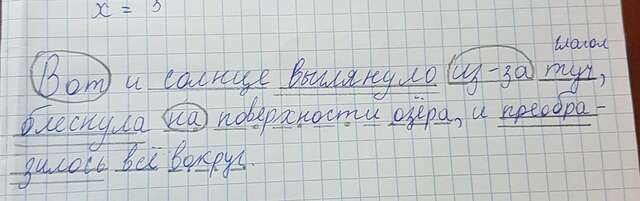 x = 3
глагол
Вот и солнце выглянуло из-за туч,
блеснула на поверхности озёра, и преобра-
зилось всё вокруг.